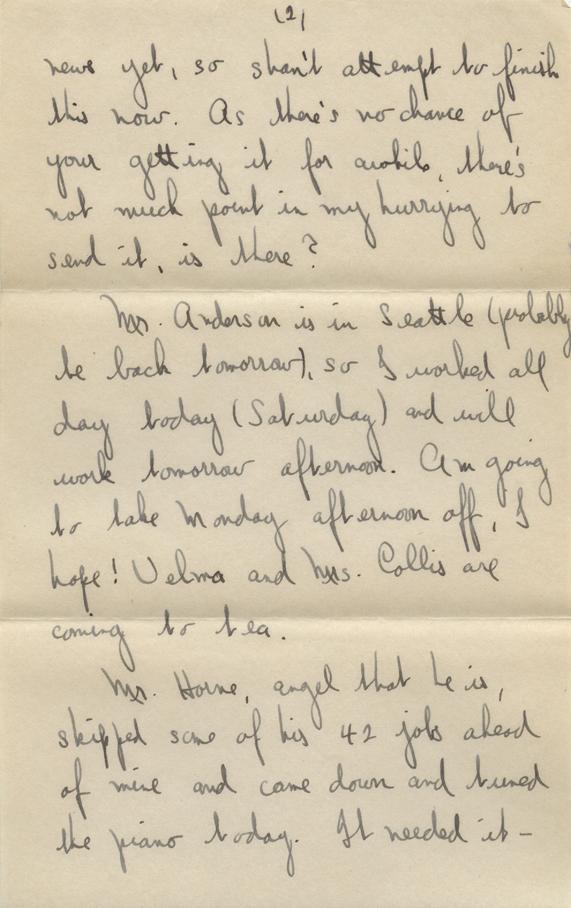 (2)
news yet, so shan't attempt to finish
this now. As there's no chance of
your getting it for awhile, there's
not much point in my hurrying to
send it, is there?
Mr. Anderson is in Seattle (probably
be back tomorrow), so I worked all
day today (Saturday) and will
work tomorrow afternoon. Am going
to take Monday afternoon off, I
hope! Velma and Mrs. Collis are
coming to tea.
Mr. Horne, angel that he is,
skipped some of his 42 jobs ahead
of mine and came down and tuned
the piano today. It needed it -